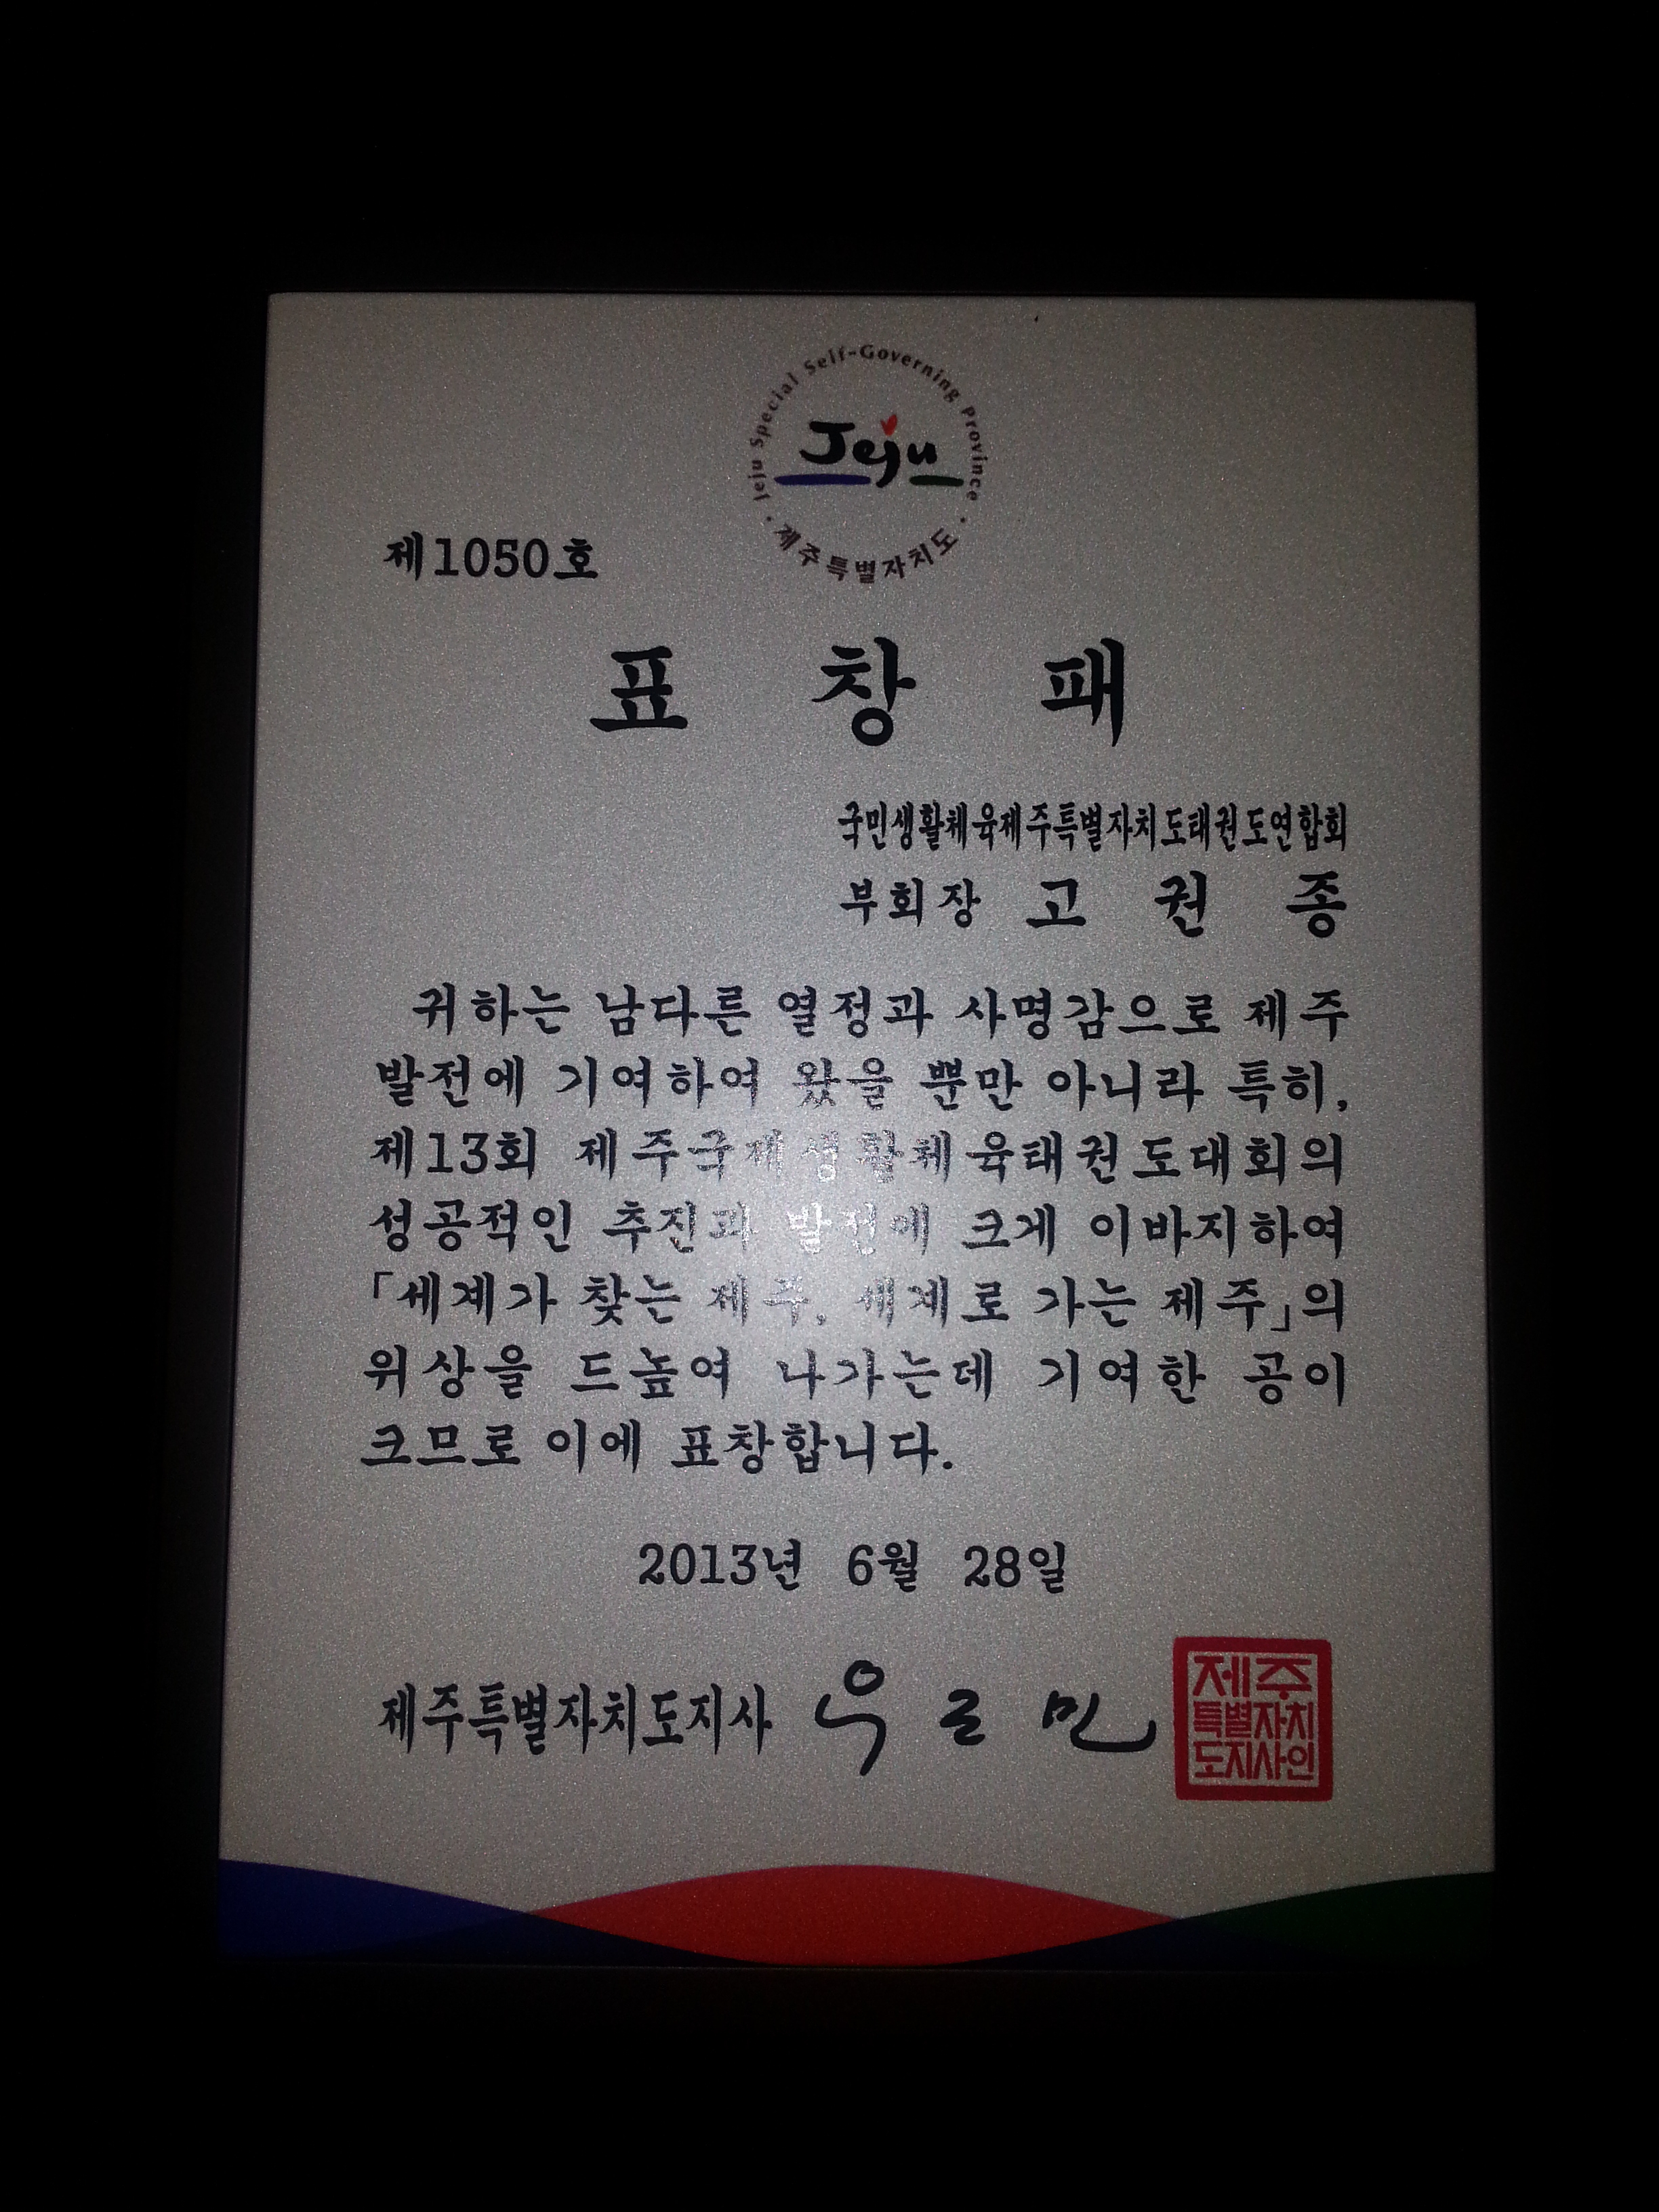 Jeju Special Self-Governing Province
Jeju
· 제주특별자치도 ·
제1050호
표 창 패
국민생활체육제주특별자치도태권도연합회
부회장 고 권 종
귀하는 남다른 열정과 사명감으로 제주
발전에 기여하여 왔을 뿐만 아니라 특히,
제13회 제주국제생활체육태권도대회의
성공적인 추진과 발전에 크게 이바지하여
「세계가 찾는 제주, 세계로 가는 제주」의
위상을 드높여 나가는데 기여한 공이
크므로 이에 표창합니다.
2013년 6월 28일
제주특별자치도지사 우근민
제주
특별자치
도지사인